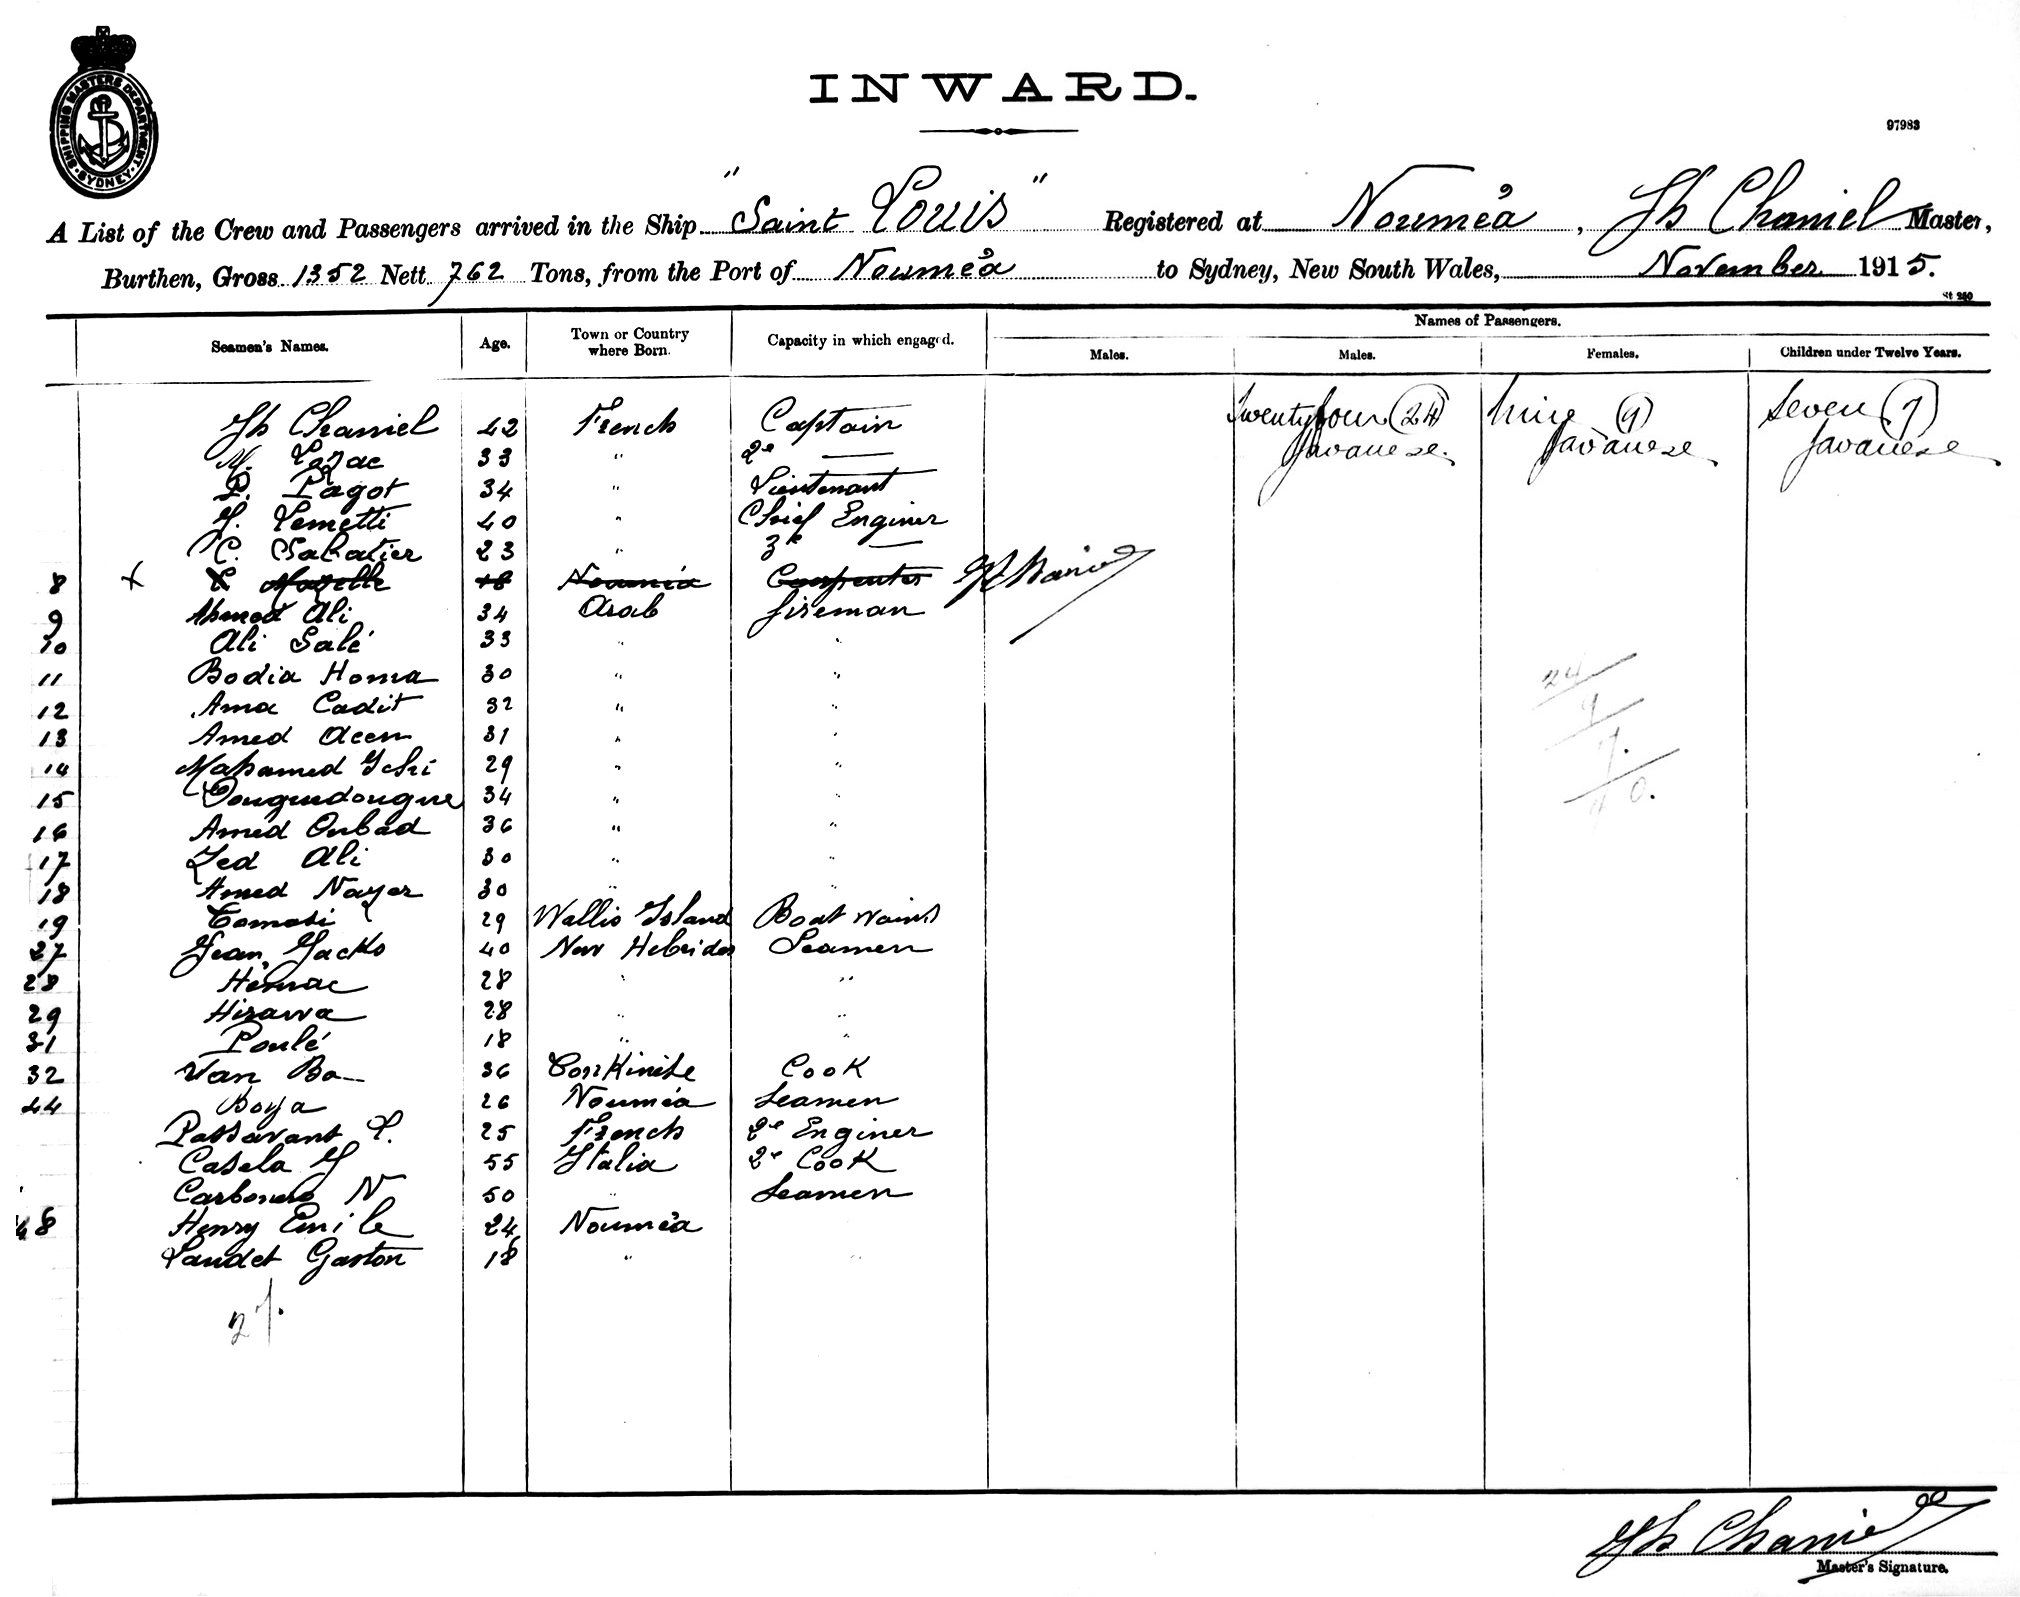 SHIPPING MASTERS DEPARTMENT SYDNEY
INWARD.
97983
A List of the Crew and Passengers arrived in the Ship "Saint Louis" Registered at Nouméa, Jh Chaniel Master,
Burthen, Gross 1352 Nett 762 Tons, from the Port of Nouméa to Sydney, New South Wales, November 1915.
St 250
Names of Passengers.
Seamen's Names. Age. Town or Country where Born. Capacity in which engaged. Males. Males. Females. Children under Twelve Years.
Twentyfour (24) Javanese. Nine (9) Javanese Seven (7) Javanese
Jh Chaniel 42 French Captain
M. 33 " 2e —
P. Pagot 34 " Lieutenant
J. Lemetti 40 " Chief Enginer
C. Sabatier 23 " 3e —
8 x Mazelle 18 Nouméa Carpenter Jh Chaniel
9 Ahmed Ali 34 Arab fireman
10 Ali Salé 33 " "
11 Bodia Homa 30 " "
12 Ama Cadit 32 " "
13 Amed Acem 31 " "
14 Mahamed 29 " "
15 Douguedougue 34 " "
16 Amed Oubad 36 " "
17 Zed Ali 30 " "
18 Amed Nayer 30 " "
19 Tomasi 29 Wallis Island Boat wains
27 Jean Jacko 40 New Hebrides Seamen
28 Hemae 28 " "
29 Hirawa 28 " "
31 Poulé 18 " "
32 Van Ba 36 Tonkinise Cook
44 Boya 26 Nouméa Seamen
Passavant P. 25 French 2e Enginer
Casela J 55 Italia 2e Cook
Carbonero N 50 " Seamen
48 Henry Emile 24 Nouméa
Laudet Gaston 18 " "
27.
24
9
7.
40.
Jh Chaniel
Master's Signature.